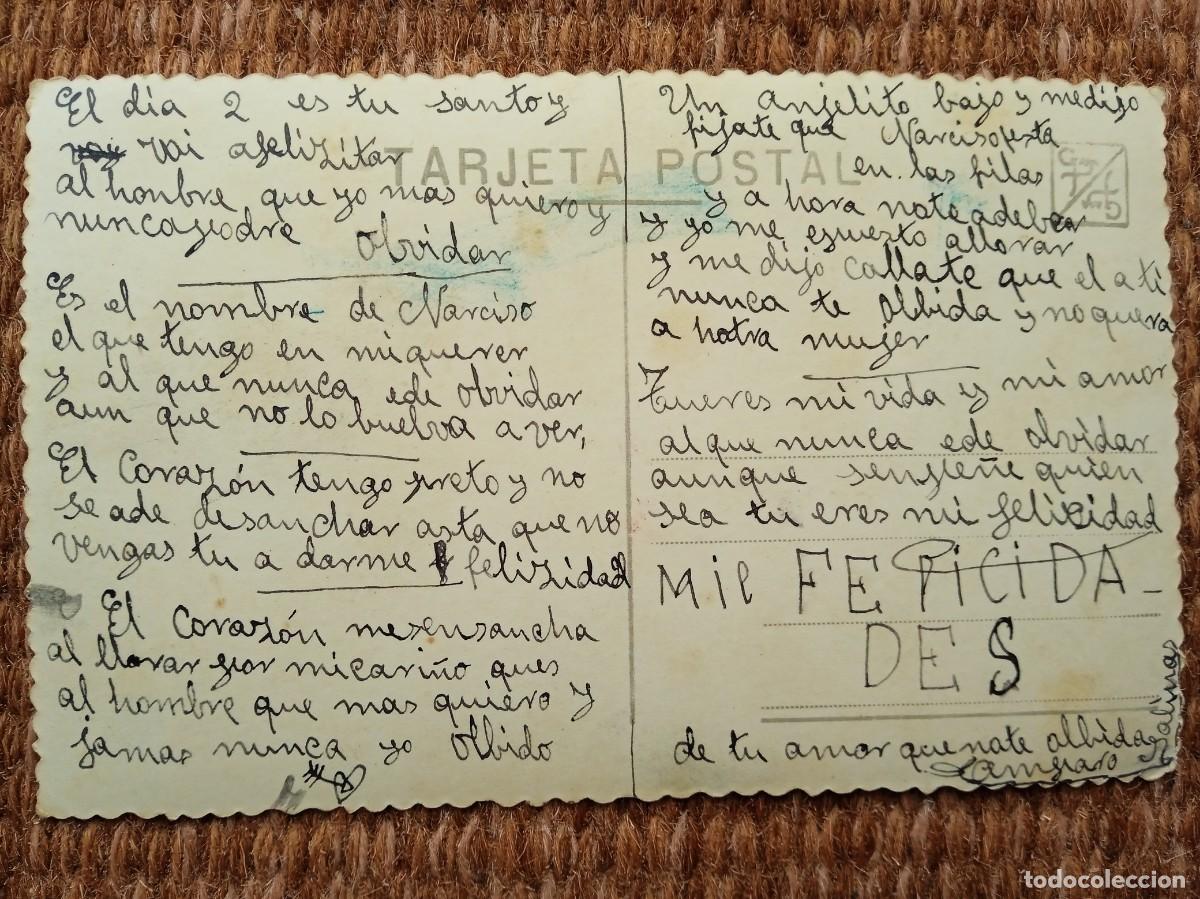 El dia 2 es tu santo y
voy voi afelizitar
al honbre que yo mas quiero y
nunca podre
olvidar
Es el nombre de Narciso
el que tengo en mi querer
y al que nunca ede olvidar
aun que no lo buelva a ver,
El Corazón tengo preto y no
se ade desanchar asta que no
vengas tu a darme felizidad
El Corazón mesensancha
al llorar por micariño ques
al hombre que mas quiero y
jamas nunca yo olbido
TARJETA POSTAL
Un anjelito bajo y medijo
fijate que Narciso esta
en las filas
y a hora note adeber
y yo me espuesto allorar
y me dijo callate que el a ti
nunca te olbida y noquera
a hotra mujer
Tueres mi vida y mi amor
alque nunca ede olvidar
aunque senpeñe quien
sea tu eres mi felicidad
Mil FELICIDA-
DES
de tu amor quenate olbida
Amparo Salinas
todocoleccion